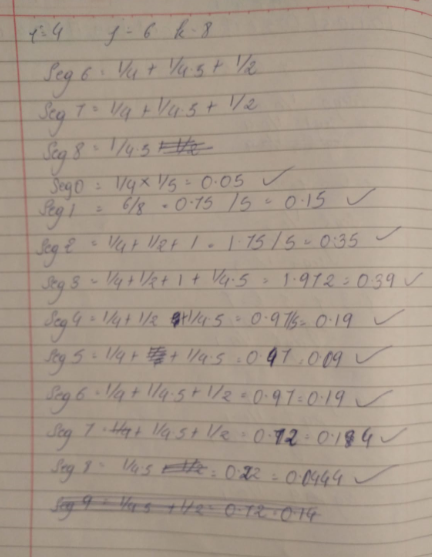 i=4 j=6 k-8
Seg 6 = 1/4 + 1/4.5 + 1/2
Seg 7 = 1/4 + 1/4.5 + 1/2
Seg 8 = 1/4.5 + 1/2
Seg 0 = 1/4 × 1/5 = 0.05 ✓
Seg 1 = 6/8 = 0.75 /5 = 0.15 ✓
Seg 2 = 1/4 + 1/2 + 1 = 1.75 /5 = 0.35 ✓
Seg 3 = 1/4 + 1/2 + 1 + 1/4.5 = 1.972 = 0.39 ✓
Seg 4 = 1/4 + 1/2 + 1/4.5 = 0.97/5 = 0.19 ✓
Seg 5 = 1/4 + + 1/4.5 = 0.47 = 0.09 ✓
Seg 6 = 1/4 + 1/4.5 + 1/2 = 0.97 = 0.19 ✓
Seg 7 = 1/4 + 1/4.5 + 1/2 = 0.72 = 0.144 ✓
Seg 8 = 1/4.5 + 1/2 = 0.22 = 0.0444 ✓
Seg 9 = 1/4.5 + 1/2 = 0.72 = 0.14